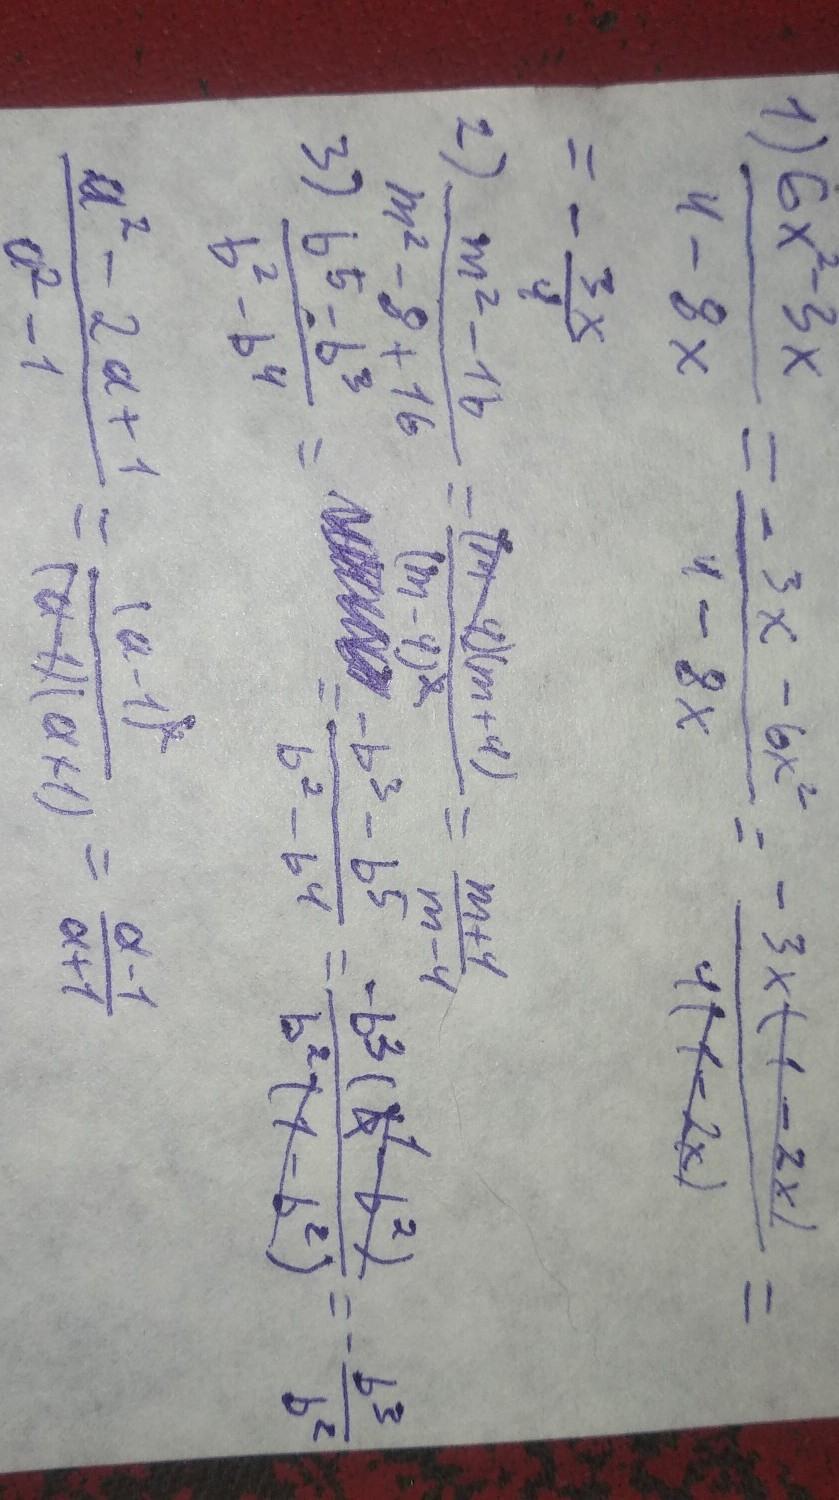 1) 6x² - 3x / 4 - 8x = - 3x - 6x² / 4 - 8x = - 3x(1 - 2x) / 4(1 - 2x) =
= - 3x / 4
2) m² - 16 / m² - 8 + 16 = (m - 4)(m + 4) / (m - 4)² = m + 4 / m - 4
3) b⁵ - b³ / b² - b⁴ = = - b³ - b⁵ / b² - b⁴ = - b³(1 - b²) / b²(1 - b²) = - b³ / b²
a² - 2a + 1 / a² - 1 = (a - 1)² / (a - 1)(a + 1) = a - 1 / a + 1